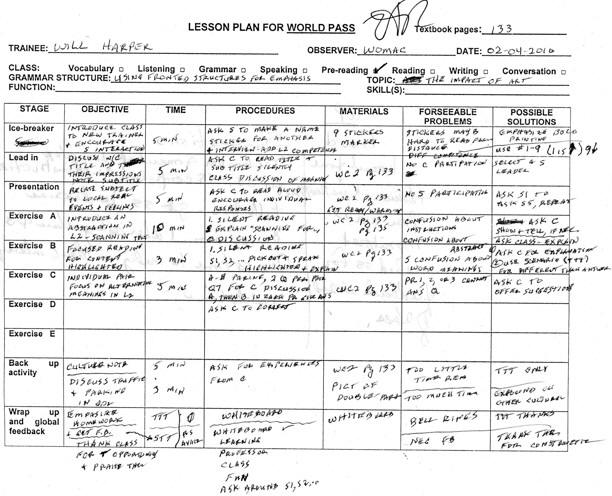 LESSON PLAN FOR WORLD PASS
Textbook pages: 133
TRAINEE: WILL HARPER OBSERVER: WOMAC DATE: 02-04-2010
CLASS: Vocabulary □ Listening □ Grammar □ Speaking □ Pre-reading ✓ Reading □ Writing □ Conversation □
GRAMMAR STRUCTURE: USING FRONTED STRUCTURES FOR EMPHASIS TOPIC: THE IMPACT OF ART
FUNCTION: SKILL(S):
STAGE OBJECTIVE TIME PROCEDURES MATERIALS FORSEEABLE PROBLEMS POSSIBLE SOLUTIONS
Ice-breaker
INTRODUCE CLASS TO NEW TRAINER & ENCOURAGE S INTERACTION
5 min
ASK S TO MAKE A NAME STICKER FOR ANOTHER & INTERVIEW
9 STICKERS MARKER
STICKERS MAY B HARD TO READ FR. DISTANCE
EMPHASIZE BOLD PRINTING
USE #1-9 (LIST)
Lead in
DISCUSS W/C TITLE AND THEIR IMPRESSIONS NOTE SUBTITLE
5 min
ASK C TO READ TITLE & SUB TITLE SILENTLY
CLASS DISCUSSION OF MEANING
WC2 Pg 133
NO C PARTICIPATION
SELECT A S LEADER
Presentation
RELATE SUBJECT TO LOCAL REAL EVENTS & FEELINGS
5 min
ASK C TO READ ALOUD
ENCOURAGE INDIVIDUAL RESPONSES
WC2 Pg 133
NO S PARTICIPATION
ASK S1 TO ASK S5, REPEAT
Exercise A
INTRODUCE AN ABSTRACTION IN L2 - SCANNING
10 min
1. SILENT READING
EXPLAIN "SCANNING" FOR
DISCUSSION
WC2 Pg 133
CONFUSION ABOUT INSTRUCTIONS
ASK C
SHOW & TELL, IF NEC.
Exercise B
FOCUSED READING FOR CONTENT HIGHLIGHTED
3 min
1. SILENT READING
S1, S2... PICK OUT & SPEAK
HIGHLIGHTED & EXPLAIN
WC2 Pg 133
CONFUSION ABOUT ABSTRACT
ASK CLASS - EXPLAIN
ASK C FOR EXPLANATION
USE SCENARIO (TTT)
Exercise C
INDIVIDUAL PAIR FOCUS ON ALTERNATIVE MEANINGS IN L2
5 min
A-B PAIRING, 2 Q PER PAIR
Q7 FOR C DISCUSSION
A, THEN B IN EACH PAIR
WC2 Pg 133
S CONFUSION ABOUT WORD MEANINGS
PR 1, 2, OR 3 CANNOT ANS Q
FOR DIFFERENT ANSWER
ASK C TO OFFER SUGGESTIONS
Exercise D
ASK C TO CORRECT
Exercise E
Back up activity
CULTURE NOTE
DISCUSS TRAFFIC & PARKING
5 min
3 min
ASK FOR EXPERIENCES FROM C
WC2 Pg 133
PICT OF DOUBLE PARK
TOO LITTLE TIME REM
TOO MUCH TIME
TTT ONLY
EXPOUND ON OTHER CULTURAL
Wrap up and global feedback
EMPHASIZE HOMEWORK
GET F.B.
THANK CLASS FOR OPPORTUNITY & PRAISE THEM
TTT
STT
AS AVAIL
WHITEBOARD
WHITEBOARD
LEARNING
PROFESSOR
CLASS
FUN
ASK AROUND S1, S2...
WHITEBOARD
BELL RINGS
NEG FB
TTT THANKS
THANK THEM FOR CONSTRUCTIVE